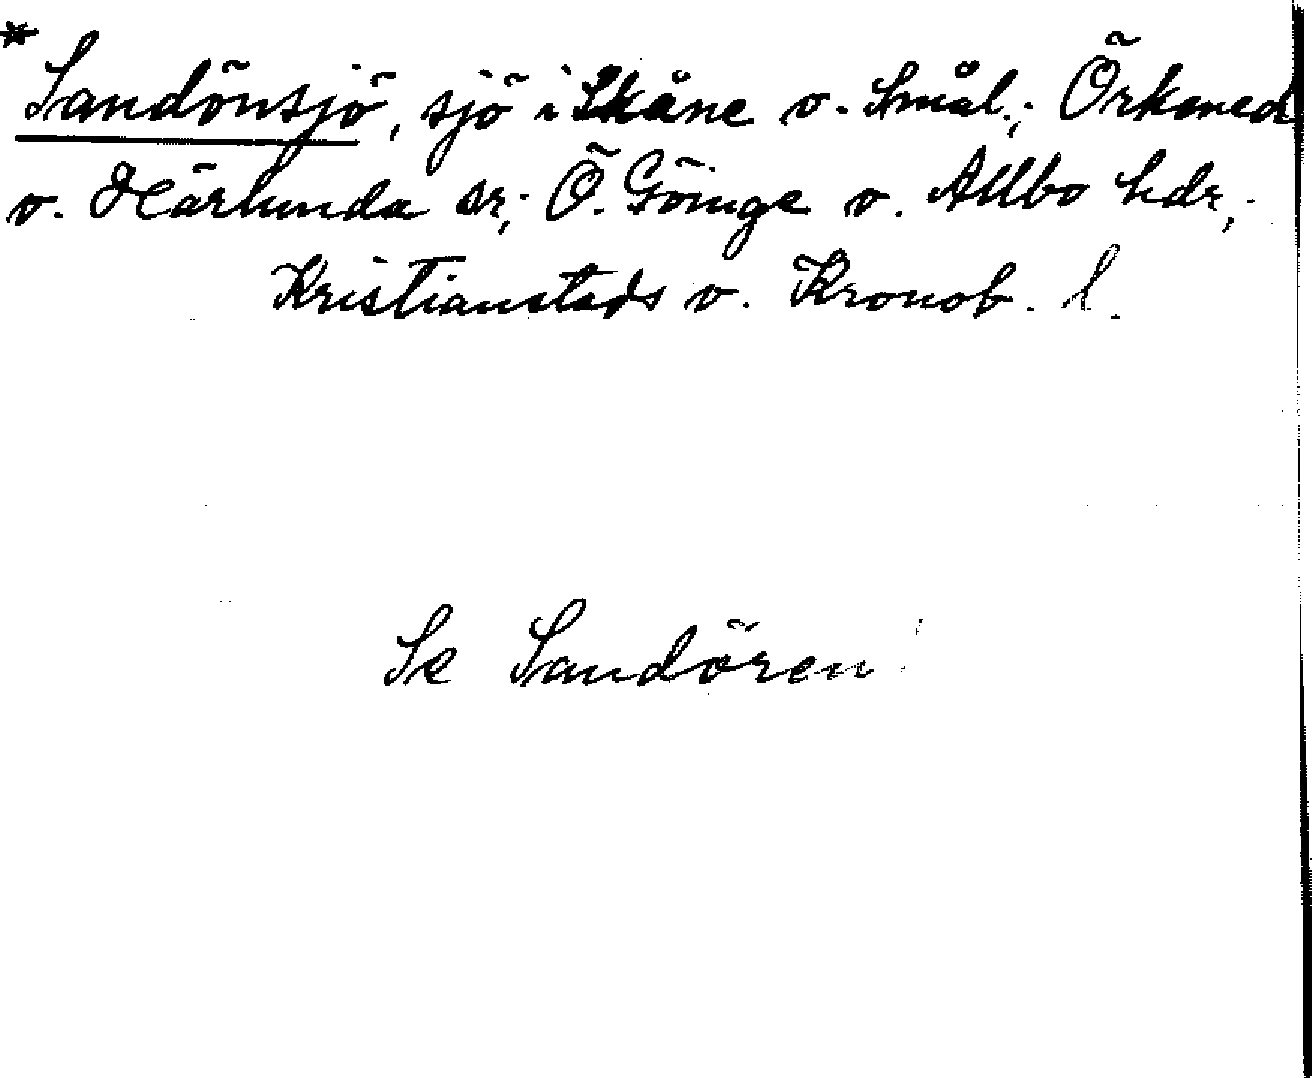 * Sandönsjö, sjö i Skåne o. Smål.; Örkened
o. Härlunda sr; Ö. Göinge o. Allbo hdr;
Kristianstads o. Kronob. l.
Se Sandören!